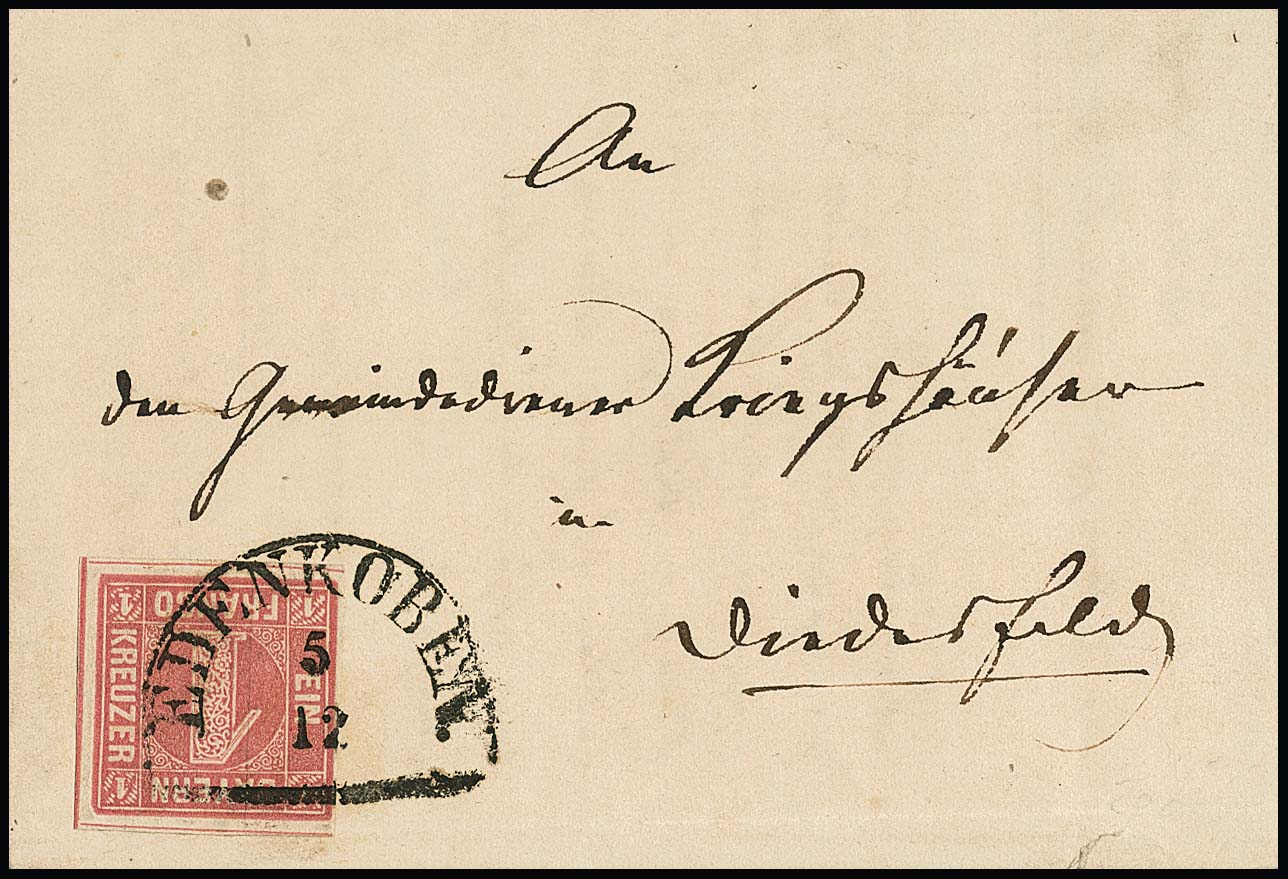 An
den Gemeindediener Kriegshäuser
in
Diedesfeld
EDENKOBEN.
5
12
BAYERN
EIN
FRANCO
KREUZER
1
1
1
1